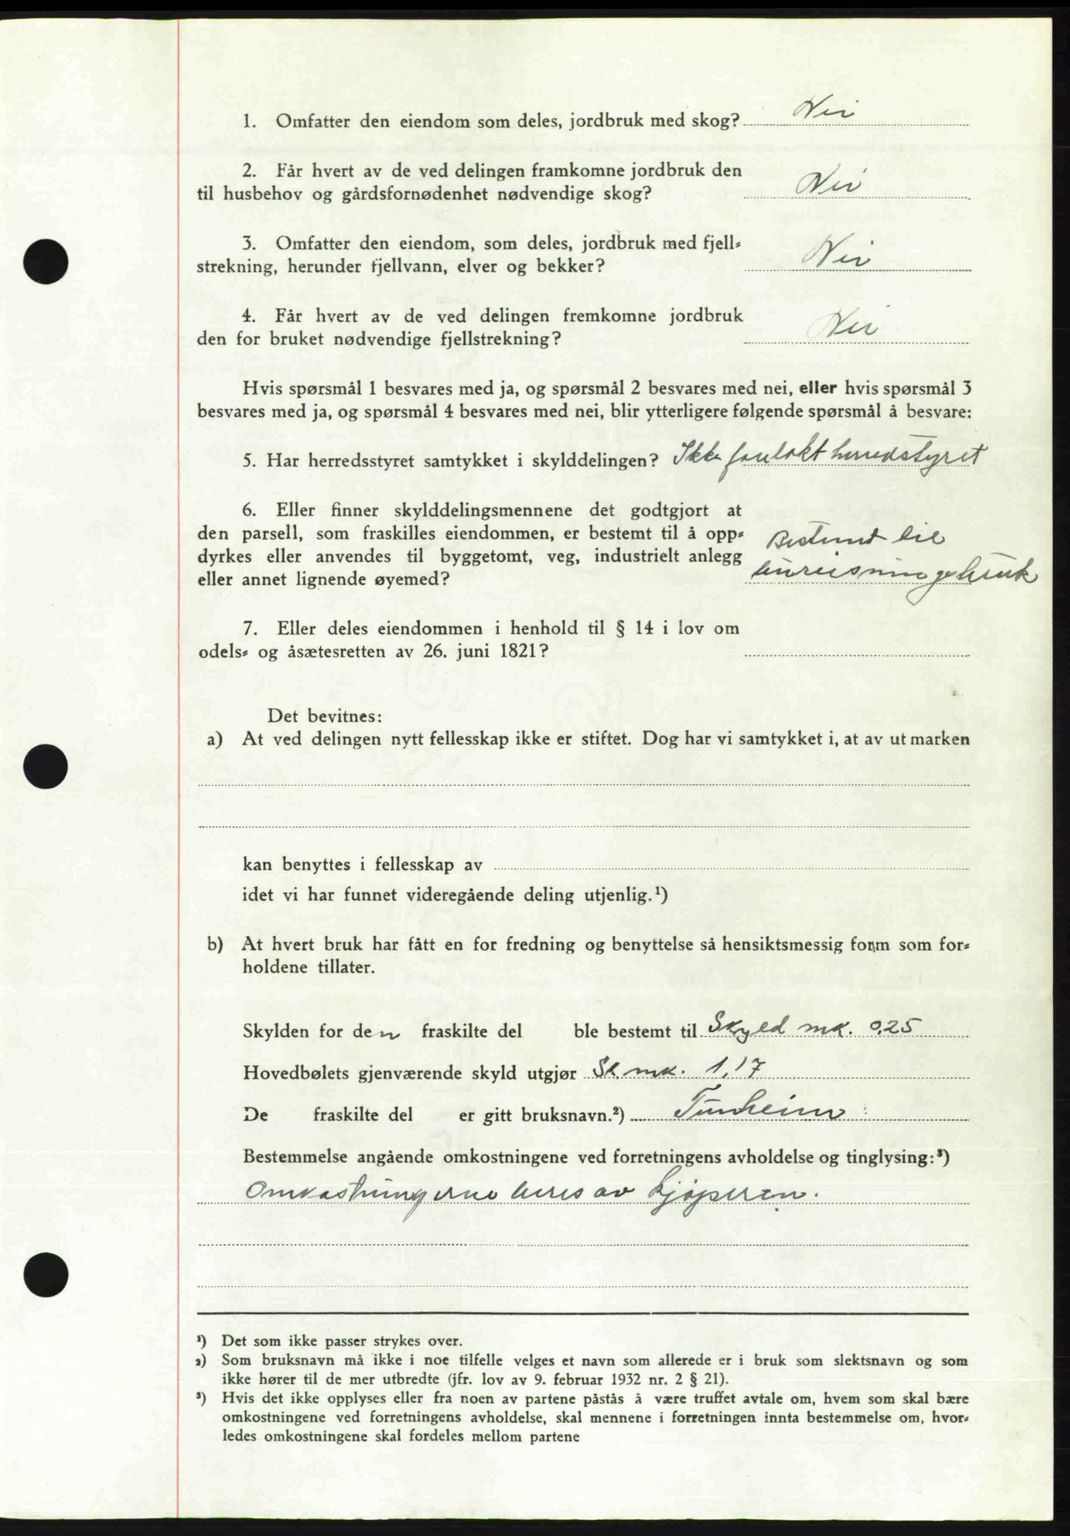 1. Omfatter den eiendom som deles, jordbruk med skog? Nei
2. Får hvert av de ved delingen framkomne jordbruk den
til husbehov og gårdsfornødenhet nødvendige skog? Nei
3. Omfatter den eiendom, som deles, jordbruk med fjell-
strekning, herunder fjellvann, elver og bekker? Nei
4. Får hvert av de ved delingen fremkomne jordbruk
den for bruket nødvendige fjellstrekning? Nei
Hvis spørsmål 1 besvares med ja, og spørsmål 2 besvares med nei, eller hvis spørsmål 3
besvares med ja, og spørsmål 4 besvares med nei, blir ytterligere følgende spørsmål å besvare:
5. Har herredsstyret samtykket i skylddelingen? Ikke forelakt herredstyret
6. Eller finner skylddelingsmennene det godtgjort at
den parsell, som fraskilles eiendommen, er bestemt til å opp-
dyrkes eller anvendes til byggetomt, veg, industrielt anlegg
eller annet lignende øyemed?
Bestemt til
bureisningsbruk
7. Eller deles eiendommen i henhold til § 14 i lov om
odels- og åsætesretten av 26. juni 1821?
Det bevitnes:
a) At ved delingen nytt fellesskap ikke er stiftet. Dog har vi samtykket i, at av utmarken
kan benyttes i fellesskap av
idet vi har funnet videregående deling utjenlig.¹)
b) At hvert bruk har fått en for fredning og benyttelse så hensiktsmessig form som for-
holdene tillater.
Skylden for den fraskilte del ble bestemt til Skyld mk. 0,25
Hovedbølets gjenværende skyld utgjør Sk. mk. 1,17
De fraskilte del er gitt bruksnavn.²) Tunheim
Bestemmelse angående omkostningene ved forretningens avholdelse og tinglysing:³)
Omkostningerne beres av kjøperen.
¹) Det som ikke passer strykes over.
²) Som bruksnavn må ikke i noe tilfelle velges et navn som allerede er i bruk som slektsnavn og som
ikke hører til de mer utbredte (jfr. lov av 9. februar 1932 nr. 2 § 21).
³) Hvis det ikke opplyses eller fra noen av partene påstås å være truffet avtale om, hvem som skal bære
omkostningene ved forretningens avholdelse, skal mennene i forretningen innta bestemmelse om, hvor-
ledes omkostningene skal fordeles mellom partene